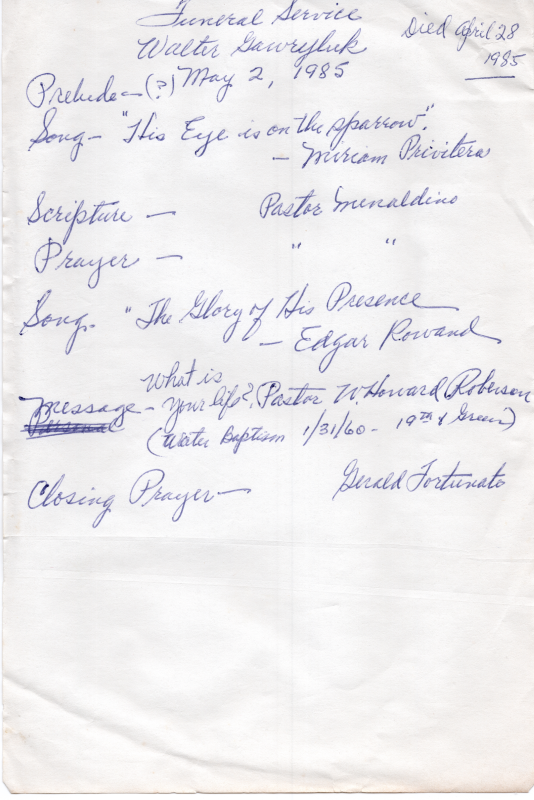 Funeral Service
Walter Gawryluk
Died April 28
1985
May 2, 1985
Prelude - (?)
Song - "His Eye is on the sparrow".
- Miriam Privitera
Scripture - Pastor Menaldino
Prayer - " "
Song. "The Glory of His Presence
- Edgar Rowand
What is
Message - your life? Pastor W. Howard Roberson
Personal
(Water Baptism 1/31/60 - 19th & Green)
Closing Prayer - Gerald Fortunato